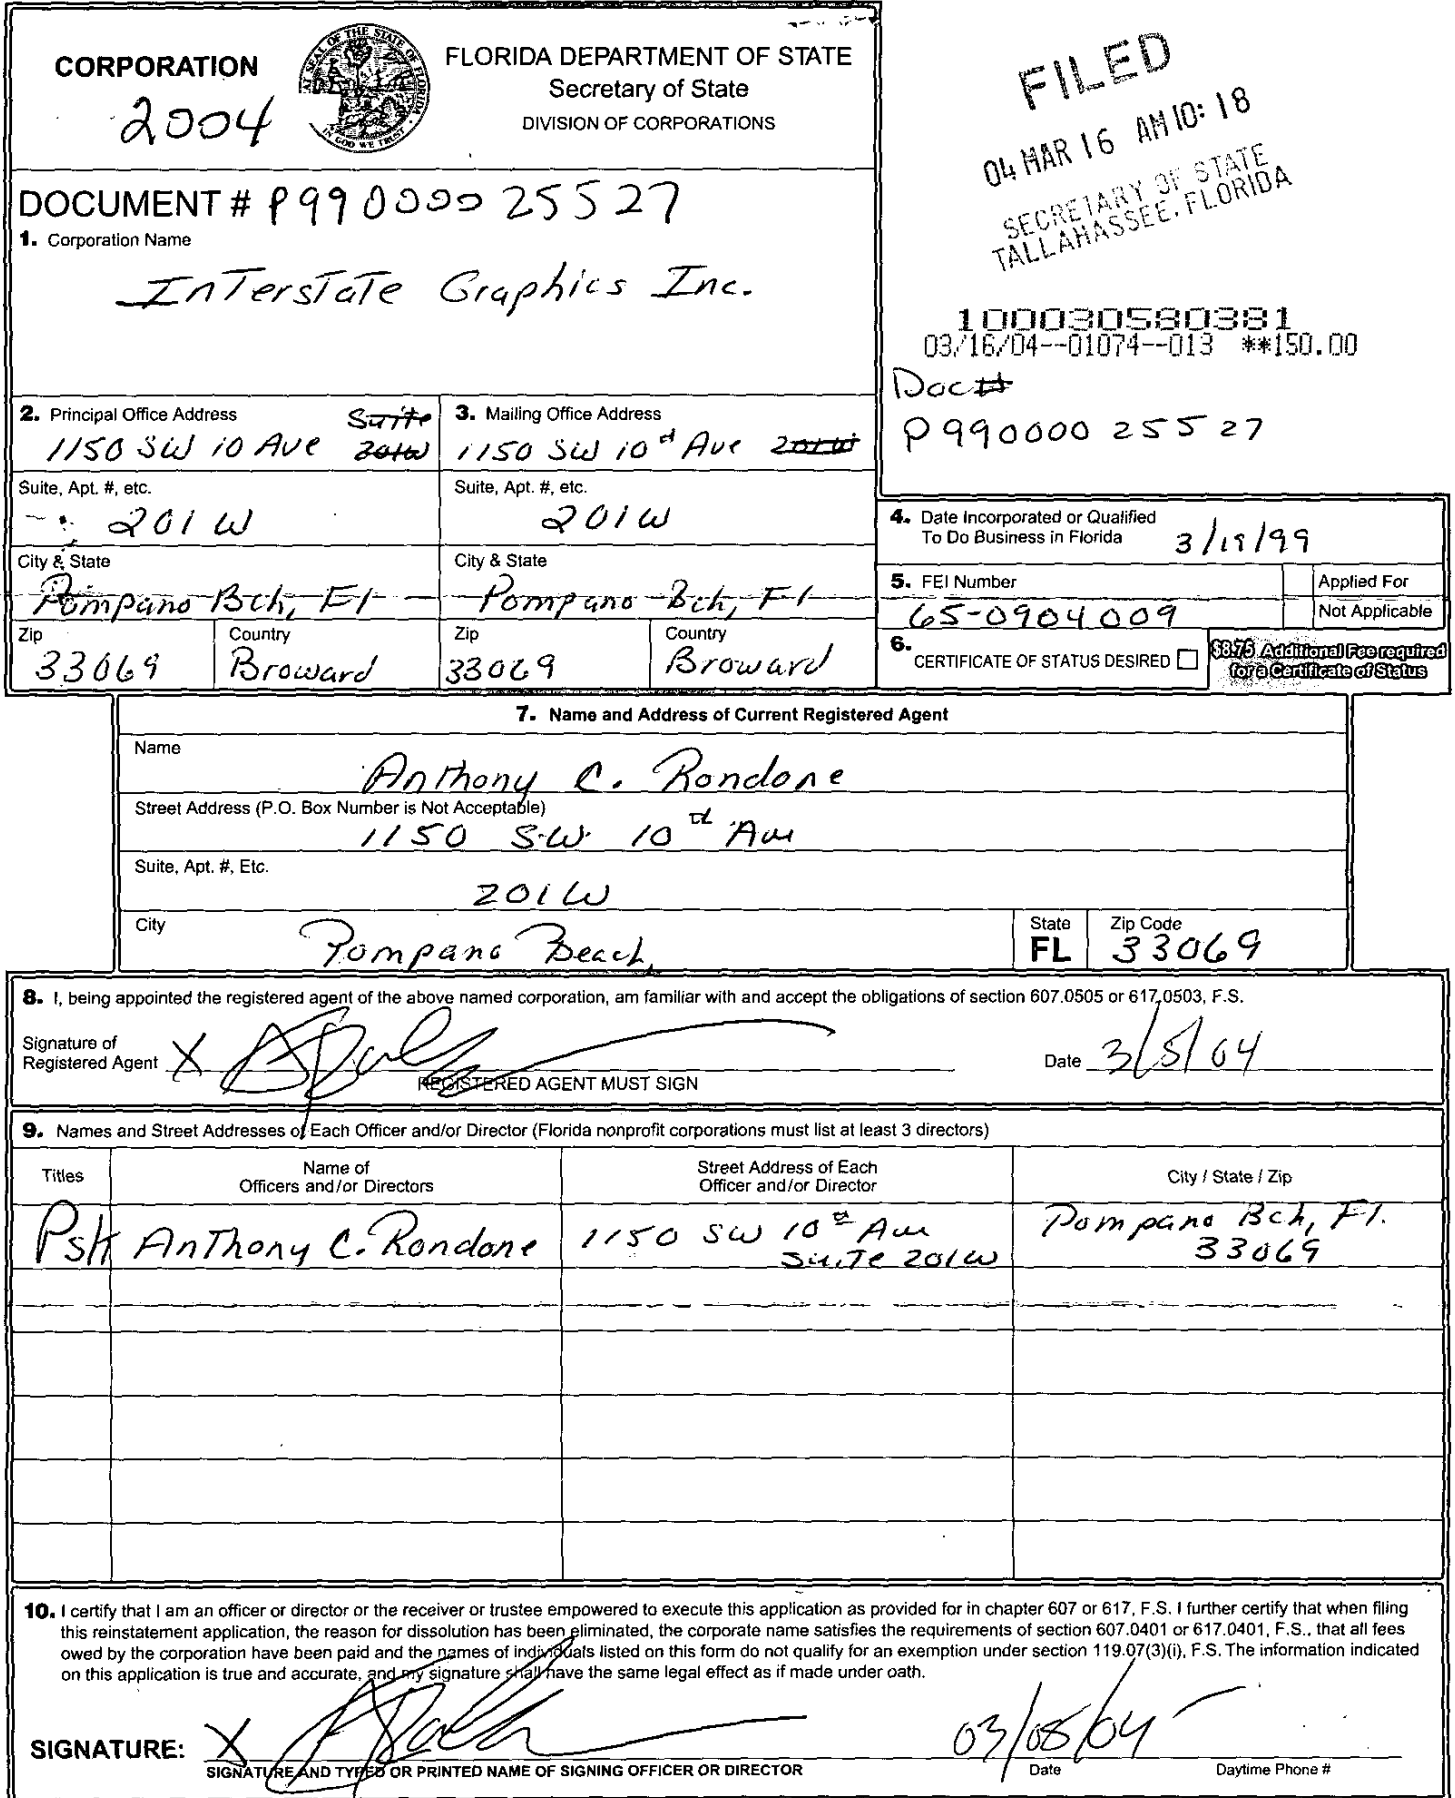 CORPORATION
2004
FLORIDA DEPARTMENT OF STATE
Secretary of State
DIVISION OF CORPORATIONS
FILED
04 MAR 16 AM 10: 18
SECRETARY OF STATE
TALLAHASSEE, FLORIDA
DOCUMENT # P99000025527
1. Corporation Name
Interstate Graphics Inc.
100030580381
03/16/04--01074--013 **150.00
Doc#
P99000025527
2. Principal Office Address
Suite
1150 SW 10 Ave 201W
3. Mailing Office Address
1150 SW 10th Ave 201W
Suite, Apt. #, etc.
201W
Suite, Apt. #, etc.
201W
City & State
Pompano Bch, Fl
City & State
Pompano Bch, Fl
Zip
33069
Country
Broward
Zip
33069
Country
Broward
4. Date Incorporated or Qualified
To Do Business in Florida
3/19/99
5. FEI Number
65-0904009
Applied For
Not Applicable
6. CERTIFICATE OF STATUS DESIRED
$8.75 Additional Fee required
for a Certificate of Status
7. Name and Address of Current Registered Agent
Name
Anthony C. Rondone
Street Address (P.O. Box Number is Not Acceptable)
1150 S.W. 10th Ave
Suite, Apt. #, Etc.
201W
City
Pompano Beach,
State
FL
Zip Code
33069
8. I, being appointed the registered agent of the above named corporation, am familiar with and accept the obligations of section 607.0505 or 617.0503, F.S.
Signature of
Registered Agent X
REGISTERED AGENT MUST SIGN
Date 3/5/04
9. Names and Street Addresses of Each Officer and/or Director (Florida nonprofit corporations must list at least 3 directors)
Titles
Name of
Officers and/or Directors
Street Address of Each
Officer and/or Director
City / State / Zip
Anthony C. Rondone
1150 SW 10th Ave
Suite 201W
Pompano Bch, Fl.
33069
10. I certify that I am an officer or director or the receiver or trustee empowered to execute this application as provided for in chapter 607 or 617, F.S. I further certify that when filing
this reinstatement application, the reason for dissolution has been eliminated, the corporate name satisfies the requirements of section 607.0401 or 617.0401, F.S., that all fees
owed by the corporation have been paid and the names of individuals listed on this form do not qualify for an exemption under section 119.07(3)(i), F.S. The information indicated
on this application is true and accurate, and my signature shall have the same legal effect as if made under oath.
SIGNATURE: X
SIGNATURE AND TYPED OR PRINTED NAME OF SIGNING OFFICER OR DIRECTOR
03/05/04
Date
Daytime Phone #